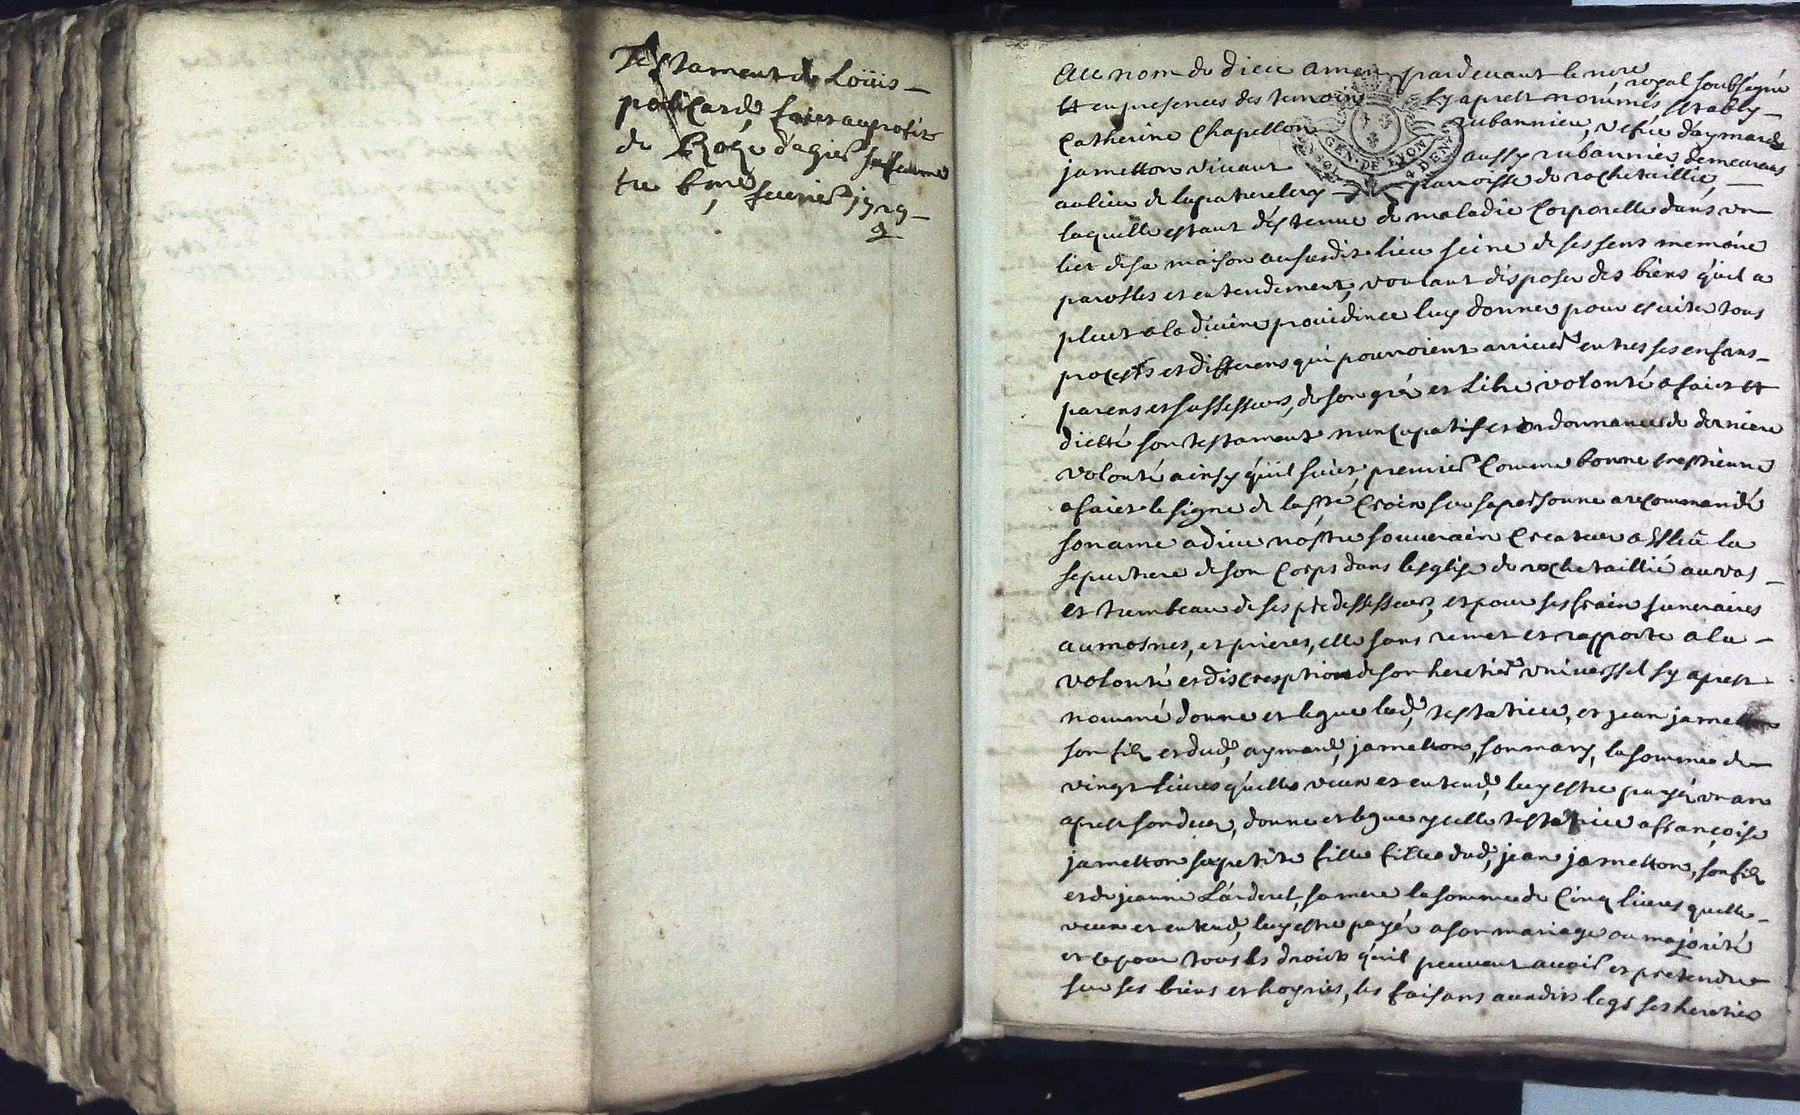 Testament de Loüis
policard, faict au profit
de Roze dagier sa femme
du 6me feurier 1729
Au nom de dieu amen, pardeuant le nore royal soubsigné
Et en presences des temoins sy apres nommés, Estably
Catherine Chapellon rubanniere, vefue d'aymard
jametton viuant aussy rubannier demeurans
au lieu de parroisse de rochetaillié,
laquelle estant destenue de maladie Corporelle dans un
lict de sa maison au susdit lieu seine de ses sens memoire
parolles et entendement, voulant disposer des biens qu'il a
pleut a la diuine prouidince luy donner pour esuiter tous
procests et differens qui pourroient arriuer entres ses enfans
parens et sussesseurs, de son gré et Libre volonté a faict et
dicté son testament nuncupatif et ordonnance de derniere
volonté ainsy qu'il suict, premier Comme bonne crestienne
a faict le signe de la ste Croix sur sa personne a recommandé
son ame a dieu nostre souuerain Createur a Esleu la
sepurture de son Corps dans lesglise de rochetaillié au vas
et tumbeau de ses predessesseurs, et pour ses frais funeraires
aumosnes, et prieres, elle sans remet et rapporte a la
volonté et discresption de son heretier vniuerssel sy apres
nommé donne et legue lad, testatrice, et jean jametton
son fils et dud, aymard, jametton, son mary, la somme de
vingt liures qu'elle veux et entend, luy estre payé vn an
apres son deces, donne et legue ycelle testatrice a françoise
jametton sa petite fille fille dud, jean jametton, son fils
et de jeanne Larderet, sa mere la somme de Cinq liures quelle
veux et entend, luy estre payé a son mariage ou majorité
et ce pour tous les droicts qu'il peuuent auoir et pretendre
sur ses biens et hoyries, les faisans auxdits legs ses heretiers
GEN. DE LYON